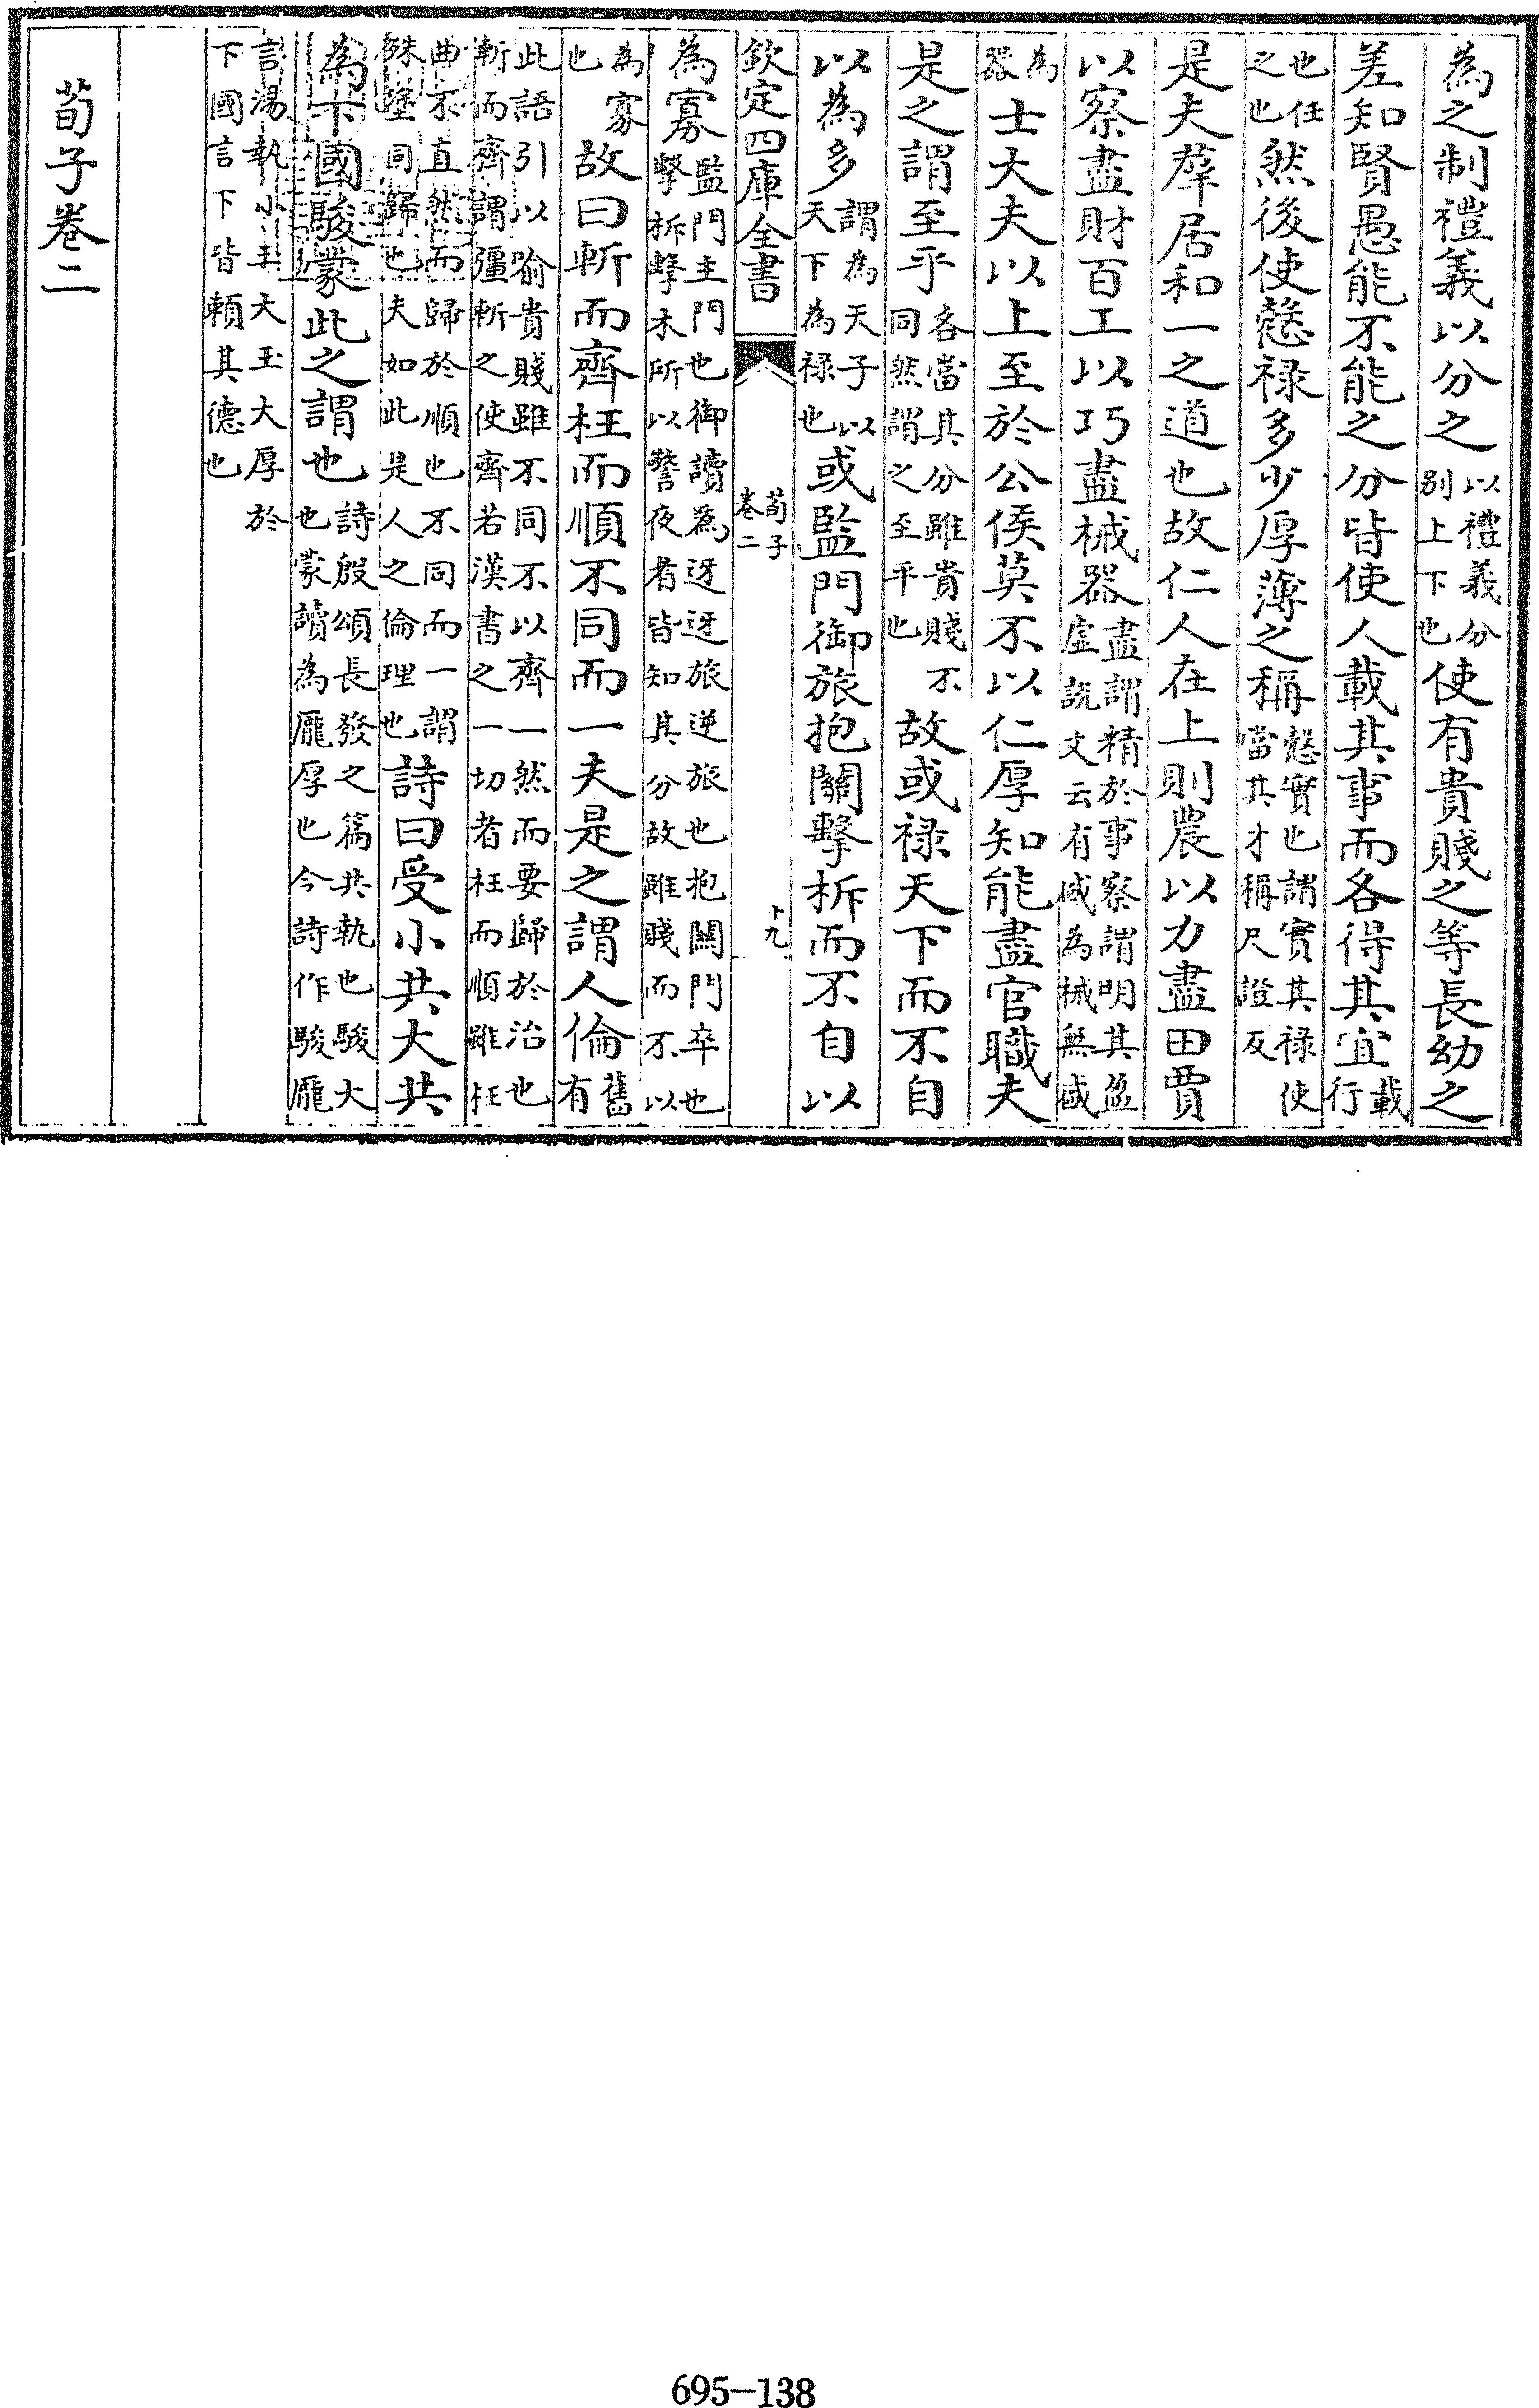 為之制禮義以分之以禮義分別上下也使有貴賤之等長幼之
差知賢愚能不能之分皆使人載其事而各得其宜載行
也任之也然後使慤禄多少厚薄之稱慤實也謂實其禄使當其才稱尺證反
是夫羣居和一之道也故仁人在上則農以力盡田賈
以察盡財百工以巧盡械器盡謂精於事察謂明其盈虚説文云有盛為械無盛
為器士大夫以上至於公侯莫不以仁厚知能盡官職夫
是之謂至乎各當其分雖貴賤不同然謂之至平也故或禄天下而不自
以為多謂為天子以天下為禄也或監門御旅抱關擊柝而不自以
欽定四庫全書
荀子
卷二
十九
為寡監門主門也御讀為迓迓旅逆旅也抱關門卒也擊柝擊木所以警夜者皆知其分故雖賤而不以
為寡也故曰斬而齊枉而順不同而一夫是之謂人倫舊有
此語引以喻貴賤雖不同不以齊一然而要歸於治也斬而齊謂彊斬之使齊若漢書之一切者枉而順雖枉
曲不直然而歸於順也不同而一謂殊塗同歸也夫如此是人之倫理也詩曰受小共大共
為下國駿蒙此之謂也詩殷頌長發之篇共執也駿大也蒙讀為龎厚也今詩作駿龎
言湯執小玉大玉大厚於下國言下皆賴其德也
荀子卷二
695-138